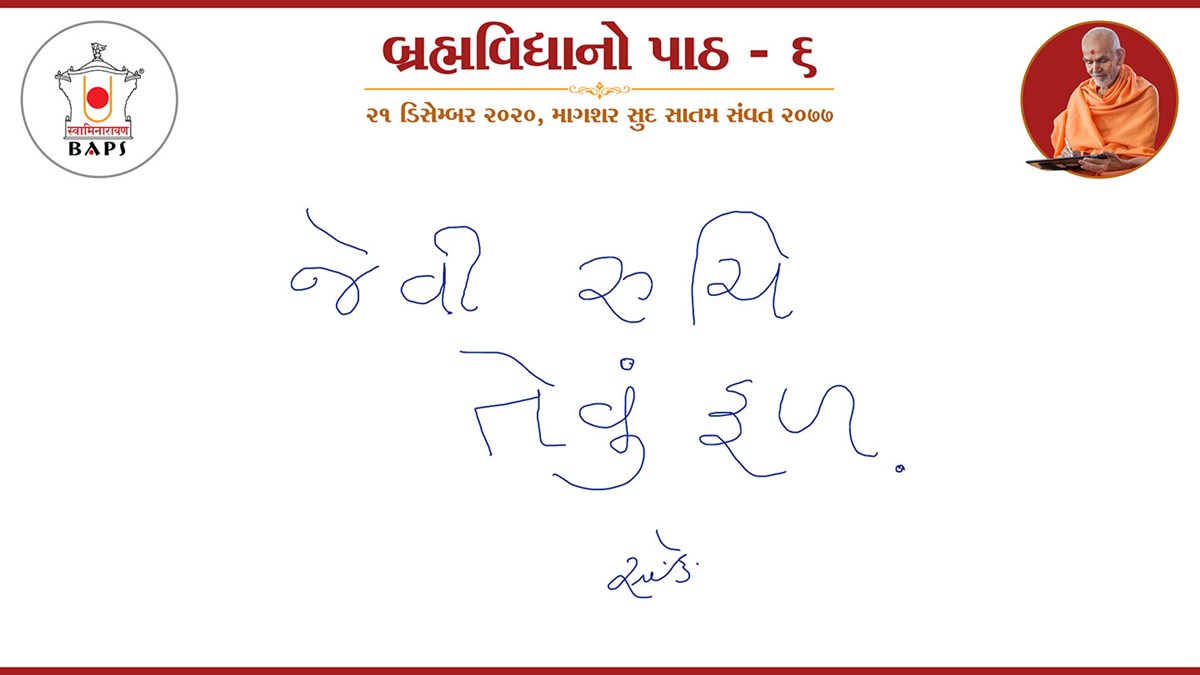 બ્રહ્મવિદ્યાનો પાઠ - ૬
૨૧ ડિસેમ્બર ૨૦૨૦, માગશર સુદ સાતમ સંવત ૨૦૭૭
स्वामिनारायण
BAPS
જેવી રુચિ
તેવું ફળ.